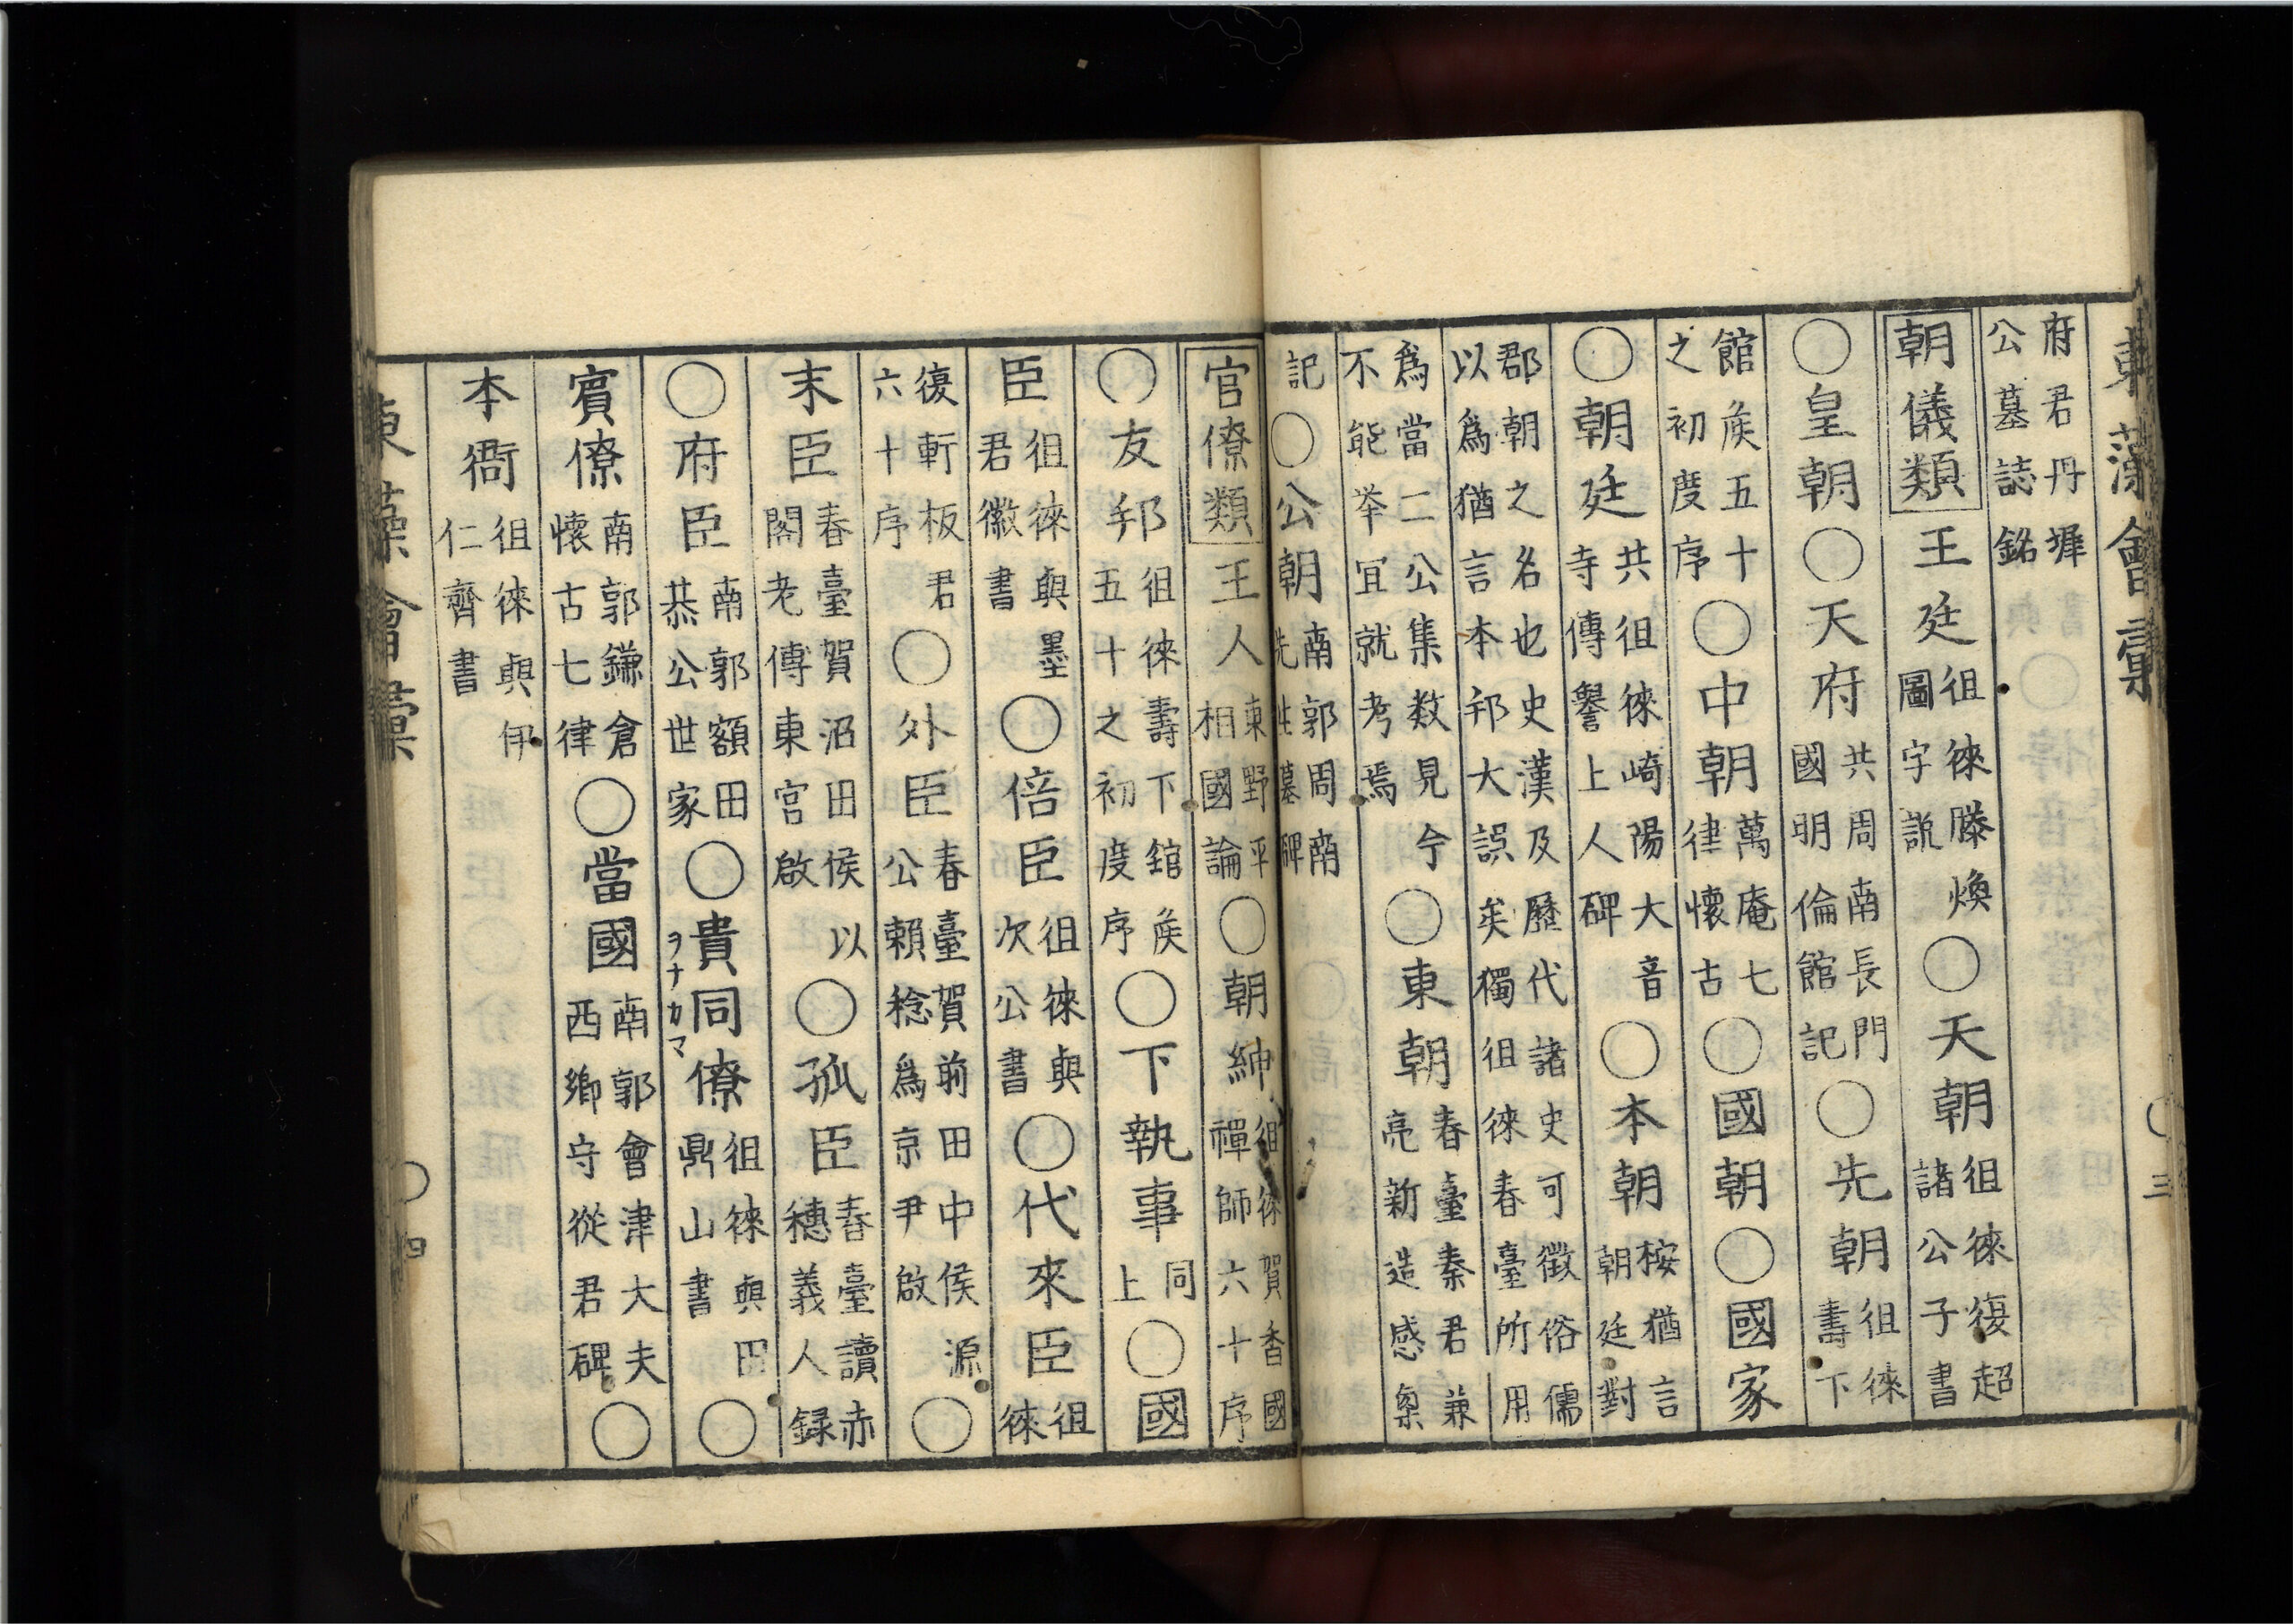 東藻會彙 〇三
府君丹墀公墓誌銘
朝儀類 王廷 徂徠滕煥圖字說 〇天朝 徂徠復超諸公子書
〇皇朝〇天府 共周南長門國明倫館記 〇先朝 徂徠壽下
館矦五十之初度序 〇中朝 萬庵七律懷古 〇國朝〇國家
〇朝廷 共徂徠崎陽大音寺傳譽上人碑 〇本朝 桉猶言朝廷對
郡朝之名也史漢及歷代諸史可徵俗儒以爲猶言本邦大誤矣獨徂徠春臺所用
爲當二公集数見今不能举冝就考焉 〇東朝 春臺秦君兼亮新造感
記 〇公朝 南郭周南先生墓碑
官僚類 王人 東野平相國論 〇朝紳 徂徠賀香國禪師六十序
〇友邦 徂徠壽下舘矦五十之初度序 〇下執事 同上 〇國
臣 徂徠與墨君徽書 〇倍臣 徂徠與次公書 〇代來臣 徂徠
復軒板君六十序 〇外臣 春臺賀前田中侯源公賴稔爲京尹啟 〇
末臣 春臺賀沼田侯以閣老傅東宮啟 〇孤臣 春臺讀赤穗義人録
〇府臣 南郭額田恭公世家 〇貴同僚 ヲナカマ 徂徠與田鼎山書 〇
賓僚 南郭鎌倉懷古七律 〇當國 南郭會津大夫西鄉守從君碑 〇
本衙 徂徠與伊仁齊書
東藻會彙 〇四